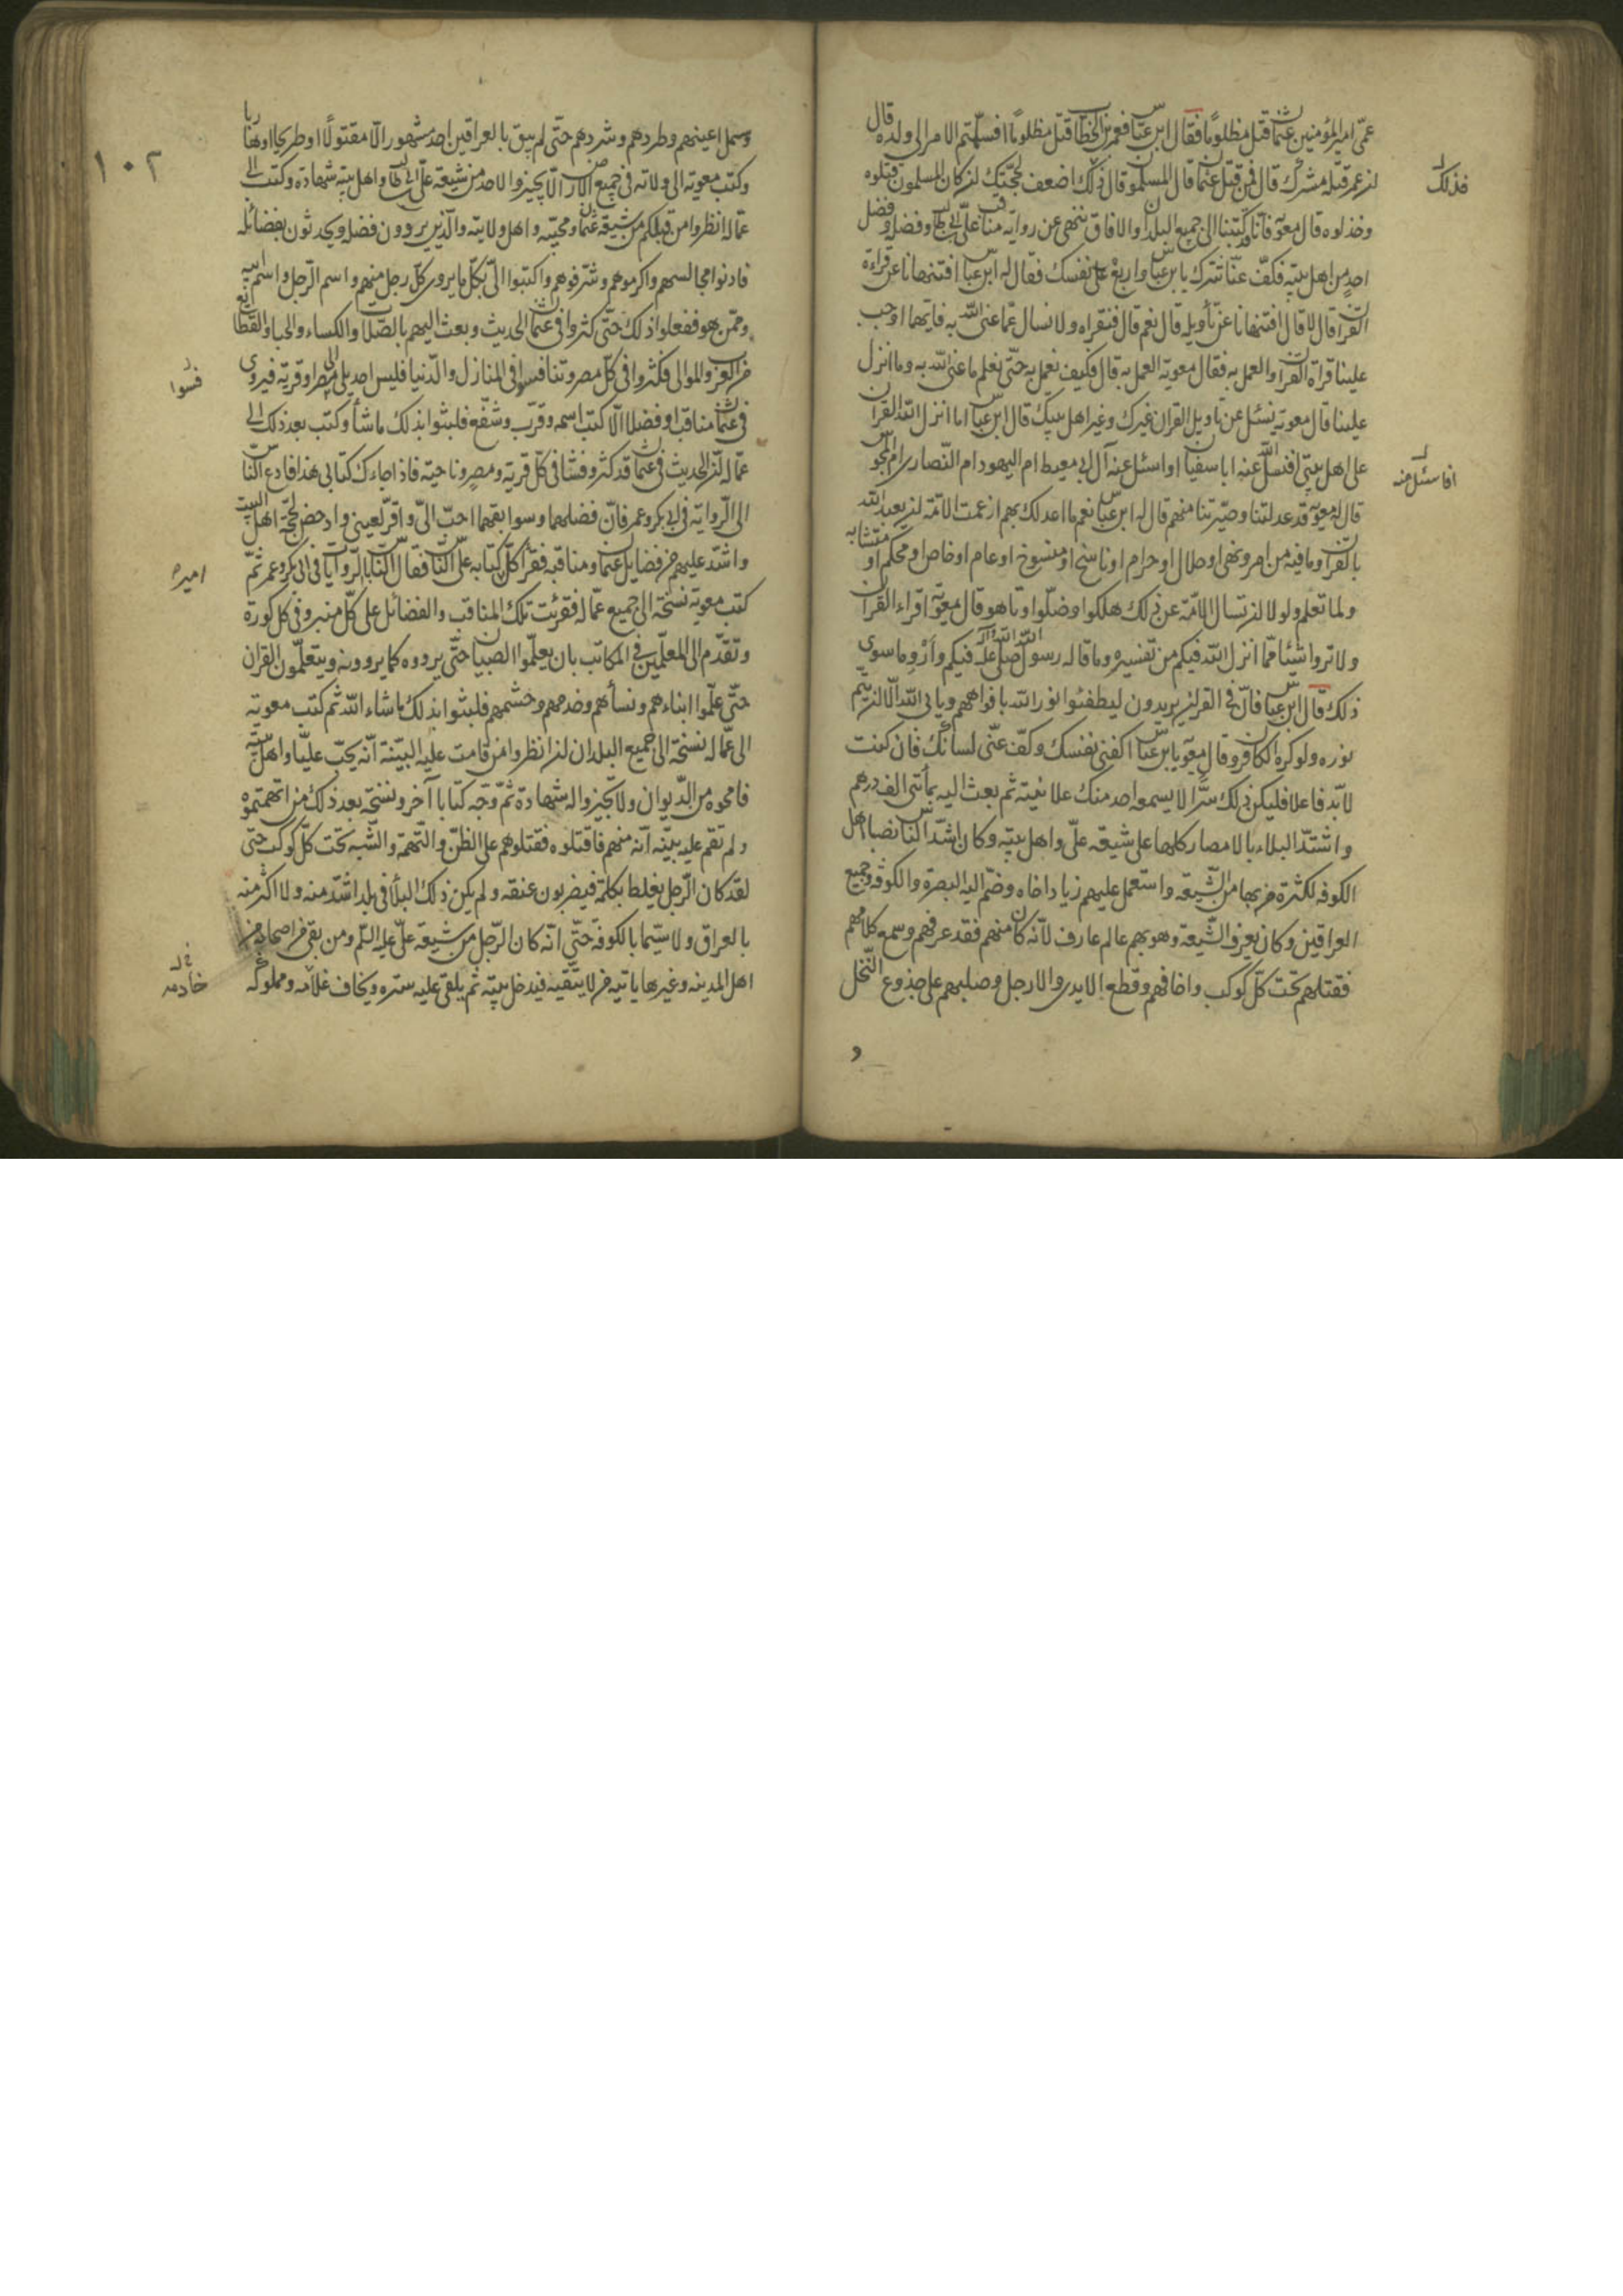 عمّى امير المؤمنين عثمان قتل مظلوما فقال ابن عباس فعمر بن الخطاب قتل مظلوما افسلّمتم الامر الى ولده قال
ان عمر قتله مشرك قال فمن قتل عثمان قال المسلمون قال فذلك اضعف لحجّتك ان كان المسلمون قتلوه
فذلك
وخذلوه قال معوية فانّا قد كتبنا الى جميع البلدان والافاق ننهى عن رواية مناقب علىّ بن ابى طالب وفضله وفضل
احد من اهل بيته فكفّ عنّا شرّك يا بن عباس واربع على نفسك فقال له ابن عباس افتنهانا عن قراءة
القران قال لا قال افتنهانا عن تأويله قال نعم قال فنقراه ولا نسال عمّا عنى الله به فايّهما اوجب
علينا قراة القران او العمل به فقال معوية العمل به قال فكيف نعمل به حتّى نعلم ما عنى الله به وما انزل
علينا قال معوية يسئل عن تاويل القران غيرك وغير اهل بيتك قال ابن عباس اما انزل الله القران
على اهل بيتى افنسئل عنه ابا سفيان او اسئل عنه آل ابى معيط ام اليهود ام النصارى ام المجوس
افاسئل عنه
قال له معوية قد عدلتنا وصيّرتنا منهم قال له ابن عباس نعم ما اعدلك بهم اذ زعمت الامّة ان يعبد الله
بالقران وما فيه من امر ونهى او حلال او حرام او ناسخ او منسوخ او عام او خاص او محكم او متشابه
ولما تعلم ولولا ان تسال الامّة عن ذلك هلكوا وضلّوا وتاهو قال معوية اقراء القران
ولا تروا شيئا ممّا انزل الله فيكم من تفسيره وما قاله رسول الله صلى الله عليه وآله فيكم وأرووا ما سوى
ذلك قال ابن عباس قال فى القران يريدون ليطفئوا نور الله بافواههم ويابى الله الّا ان يتمّ
نوره ولو كره الكافرون قال معوية يا بن عباس اكفنى نفسك وكفّ عنّى لسانك فان كنت
لا بّد فاعلا فليكن ذلك سرّا لا يسمعه احد منك علانية ثم بعث اليه بمأتى الف درهم
واشتدّ البلاء بالامصار كلها على شيعة علىّ واهل بيته وكان اشدّ الناس نصبا اهل
الكوفه لكثرة من بها من الشّيعة واستعمل عليهم زيادا خاه وضمّ اليه البصرة والكوفه وجميع
العراقين وكان يعرف الشّيعة وهو بهم عالم عارف لأنّه كان منهم فقد عرفهم وسمع كلامهم
فقتلهم تحت كلّ كوكب واخافهم وقطع الايدى والارجل وصلبهم على جذوع النّخل
و
١٠٢
وسمل اعينهم وطردهم وشردهم حتّى لم يبق بالعراقين احد مشهور الّا مقتولا او طريحا او هاربا
وكتب معوية الى ولاته فى جميع الامصار الّا يجيزوا لاحد من شيعة علىّ بن ابى طالب واهل بيته شهادة وكتب الى
عمّاله انظروا من قبلكم من شيعة عثمان ومحبّيه واهل ولايته والّذين يروون فضله ويحدثون بفضائله
فادنوا مجالسهم واكرموهم وشرّفوهم واكتبوا الىّ بكلّ ما يروى كلّ رجل منهم واسم الرّجل واسم ابيه
وممّن هو ففعلوا ذلك حتّى كثروا فى عثمان الحديث وبعث اليهم بالصّلات والكساء والحبا والقطايع
من العرب والموالى فكثروا فى كلّ مصر وتنافسوا فى المنازل والدّنيا فليس احد يلى مصرا وقرية فيروى
فسوا
فى عثمان مناقبا وفضلا الّا كتب اسمه وقرّب وشفّع فلبثوا بذلك ما شأ وكتب بعد ذلك الى
عمّاله انّ الحديث فى عثمان قد كثر وفشا فى كلّ قرية ومصر وناحيه فاذا جاءك كتابى هذا فادع الناس
الى الرّوايه فى ابى بكر وعمر فانّ فضلهما وسوابقهما احبّ الىّ واقرّ لعينى وادحض لحجّة اهل البيت
واشدّ عليهم من فضايل عثمان ومناقبه فقرأ كلّ كتابه على الناس فقال الناس بالرّوايات فى ابى بكر وعمر ثمّ
اميره
كتب معوية نسخة الى جميع عمّاله فقرئت تلك المناقب والفضائل على كلّ منبر وفى كل كورة
وتقدّم الى المعلّمين فى المكاتب بان يعلّموا الصبيان حتّى يرووه كما يروونه ويتعلّمون القران
حتّى علّموا ابناءهم ونسأهم وخدمهم وحشمهم فلبثوا بذلك ما شاء الله ثم كتب معوية
الى عمّاله نسخة الى جميع البلدان ان انظروا من قامت عليه البيّنة انّه يحبّ عليّا واهل بيته
فامحوه من الدّيوان ولا تجيزوا له شهادة ثمّ وجّه كتابا آخر ونسخة بعد ذلك من اتّهمتموه
ولم تقم عليه بيّنه انّه منهم فاقتلوه فقتلوهم على الظنّ والتّهمة والشّبه تحت كلّ كوكب حتى
لقد كان الرّجل يغلط بكلمة فيضربون عنقه ولم يكن ذلك البلأ فى بلد اشدّ منه ولا اكثر منه
بالعراق ولا سيّما بالكوفة حتّى انّه كان الرّجل من شيعة علىّ عليه السّلم ومن بقى من اصحابه من
اهل المدينه وغيرها ياتيه من لا يتّقيه فيدخل بيته ثم يلقى عليه ستره ويخاف غلامه ومملوكه
خادمه